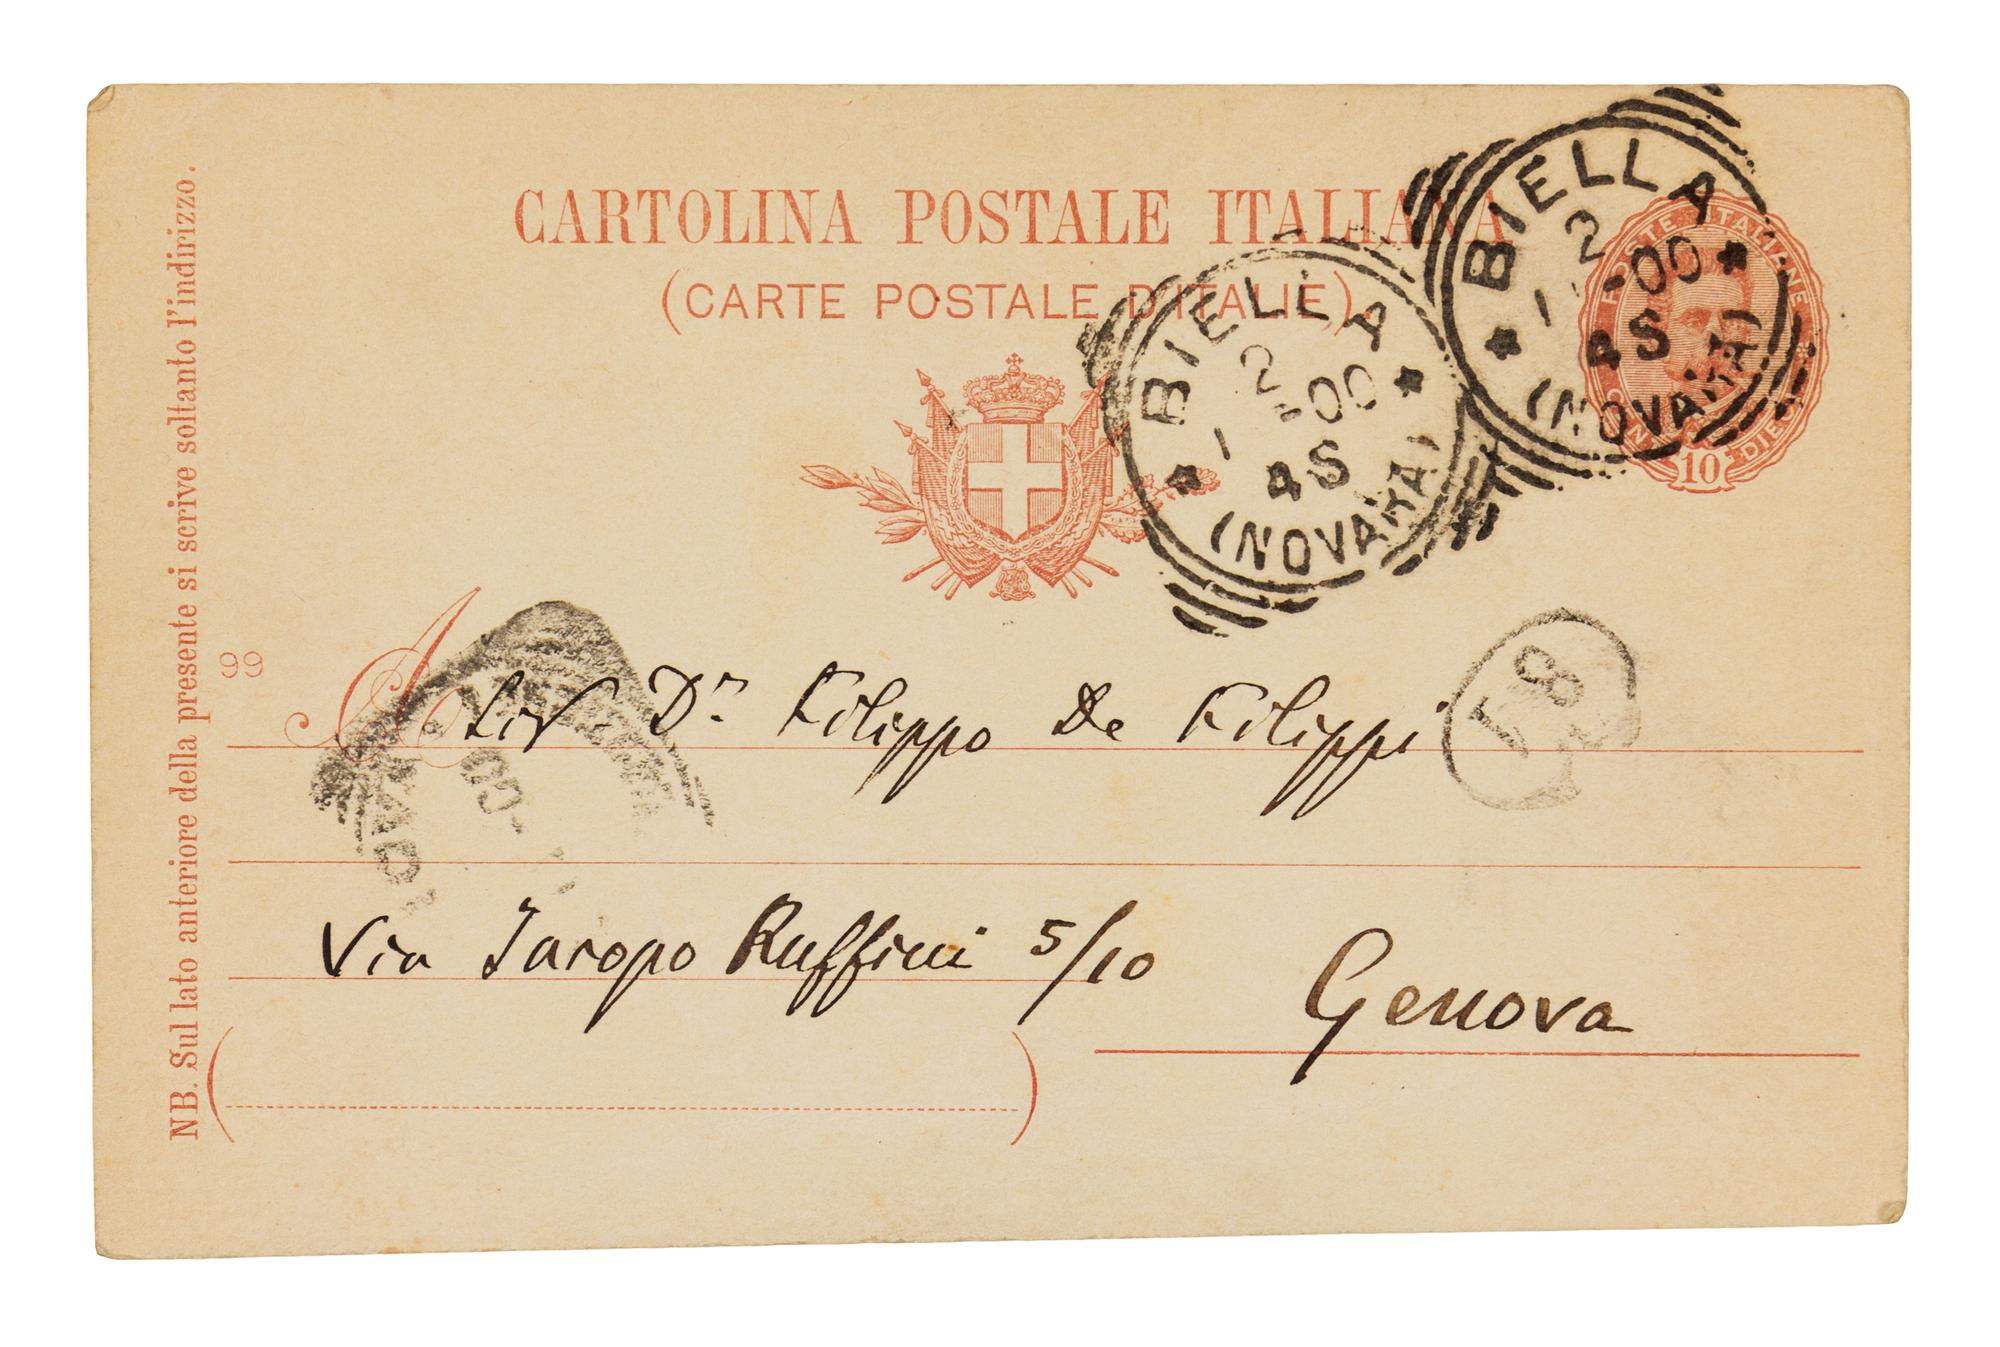 CARTOLINA POSTALE ITALIANA
(CARTE POSTALE D'ITALIE)
BIELLA
2
1 -00
4S
(NOVARA)
BIELLA
2
1 -00
4S
(NOVARA)
POSTE ITALIANE
10
NB. Sul lato anteriore della presente si scrive soltanto l'indirizzo.
99
A
Dr Filippo De Filippi
81
Via Jacopo Ruffini 5/10
Genova